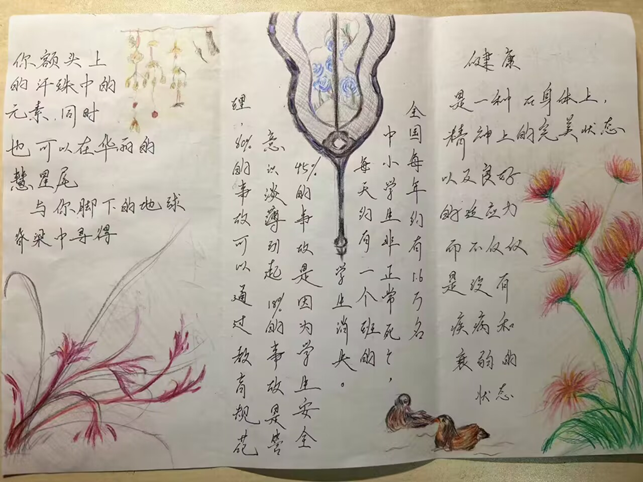 你额头上
的汗珠中的
元素、同时
也可以在华丽的
慧星尾
与你脚下的地球
脊梁中寻得
全国每年约有1.6万名
中小学生非正常死亡,
每天约有一个班的
学生消失。
45%的事故是因为学生安全
意识淡薄引起 18%的事故是管
理,80%的事故可以通过教育规范
健康
是一种在身体上,
精神上的完美状态
以及良好
的适应力
而不仅仅
是没有
疾病和
衰弱的
状态